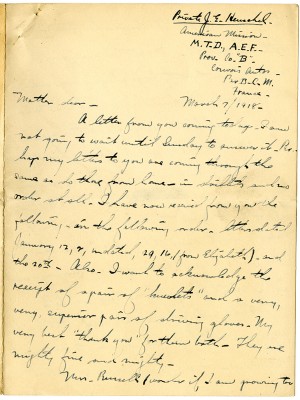 Private J. E. Henschel.
American Mission -
M.T.D., A.E.F. -
Prov. Co. "B" -
Convois Autos -
Par B.C.M.
France -
March 7/1918 -
Mother dear -
A letter from you coming to-day I am
not going to wait until Sunday to answer it. Per-
haps my letters to you are coming through the
same as to those from home - in and no
order at all. I have now received from you the
following, - in the following order - letters dated
January 12, 2, undated, 29, 16, (from Elizabeth) - and
the 20th - Also - I want to acknowledge the
receipt of a pair of " " and a very,
very superior pair of driving gloves - My
very best "thank you" for them both - They are
mighty fine and mighty -
Mrs. (wonder if I am growing to